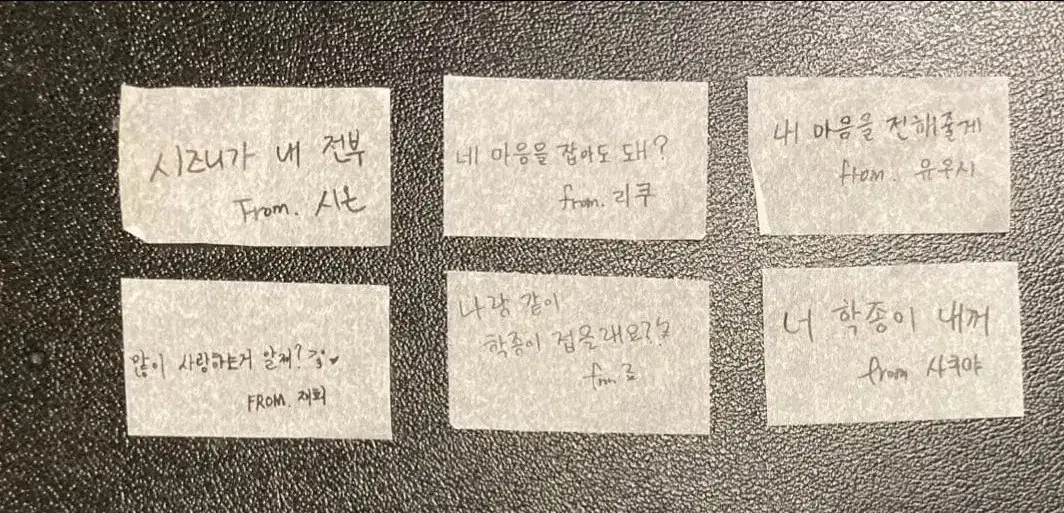 시즈니가 내 전부
From. 시온
네 마음을 잡아도 돼?
from. 리쿠
내 마음을 전해줄게
from. 유우시
많이 사랑하는거 알져?
FROM. 재희
나랑 같이
학종이 접을래요?
from 료
너 학종이 내꺼
from 사쿠야